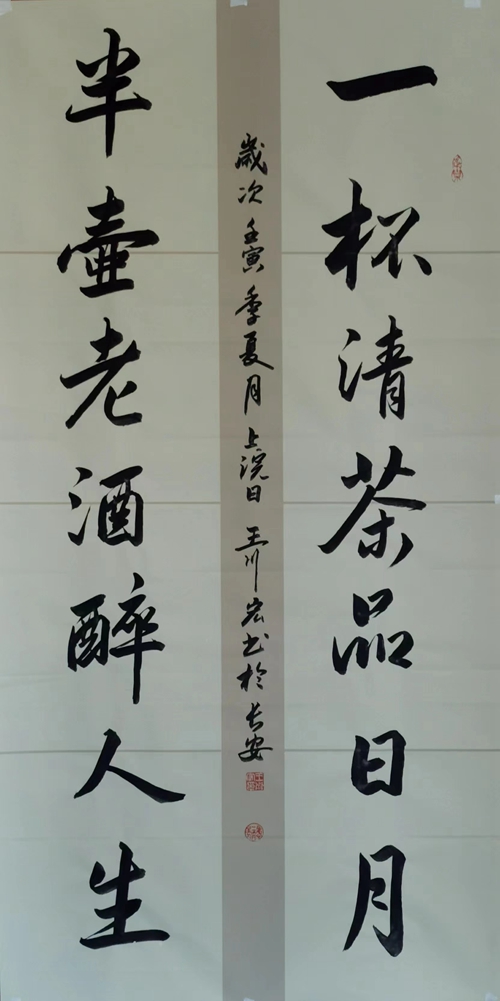 一杯清茶品日月
半壶老酒醉人生
歲次壬寅季夏月上浣日王川宏书於长安